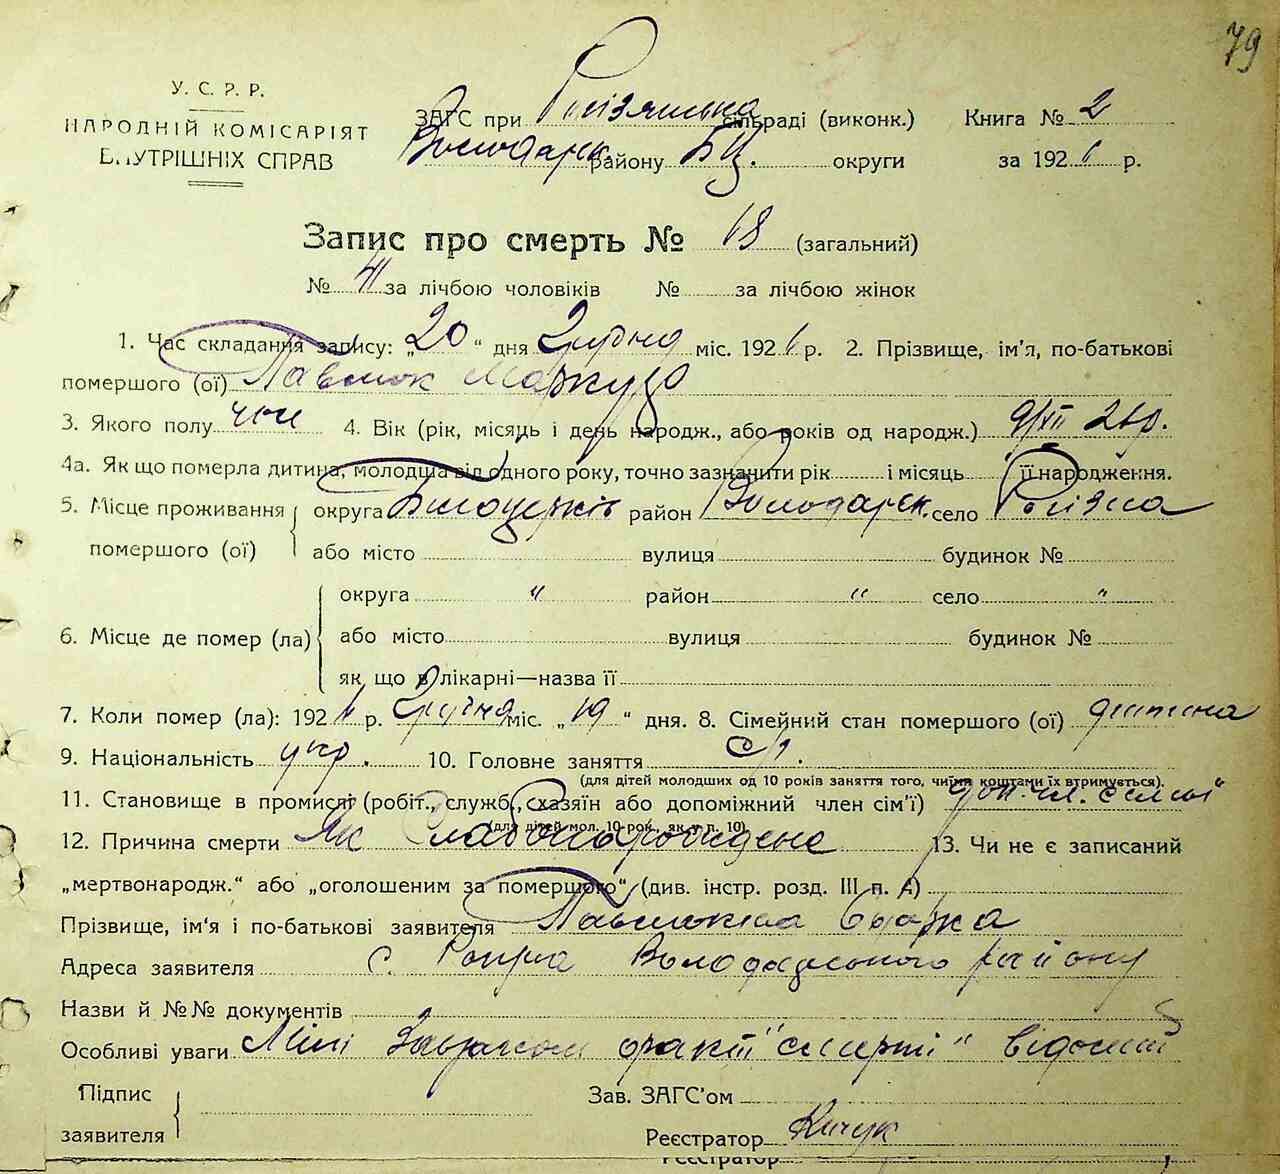 79
У. С. Р. Р.
НАРОДНІЙ КОМІСАРІЯТ
ВНУТРІШНІХ СПРАВ
ЗАГС при сільраді (виконк.) Книга № 2
Володарск. району БЦ. округи за 1926 р.
Запис про смерть № 18 (загальний)
№ 11 за лічбою чоловіків № за лічбою жінок
1. Час складання запису: „20“ дня Грудня міс. 1926 р. 2. Прізвище, ім'я, по-батькові
помершого (ої) Павлюк
3. Якого полу чол 4. Вік (рік, місяць і день народж., або років од народж.) 9/XII 26р.
4а. Як що померла дитина, молодша від одного року, точно зазначити рік і місяць її народження.
5. Місце проживання помершого (ої) округа Білоцерків район Володарск. село
або місто вулиця будинок №
6. Місце де помер (ла) округа " район " село "
або місто вулиця будинок №
як що в лікарні—назва її
7. Коли помер (ла): 1926 р. Грудня міс. „19“ дня. 8. Сімейний стан помершого (ої) дитина
9. Національність укр. 10. Головне заняття с/г.
(для дітей молодших од 10 років заняття того, чиїми коштами їх втримується).
11. Становище в промислі (робіт., служб., хазяїн або допоміжний член сім'ї) доп. чл. семьї
(для дітей мол. 10 рок., як у п. 10)
12. Причина смерти Як Слабонарождене 13. Чи не є записаний
„мертвонародж.“ або „оголошеним за помершого“ (див. інстр. розд. III п. А)
Прізвище, ім'я і по-батькові заявителя
Адреса заявителя с. Володарського району
Назви й №№ документів
Особливі уваги Мені факт "смерті" відомий
Підпис заявителя
Зав. ЗАГС'ом
Реєстратор
Реєстратор